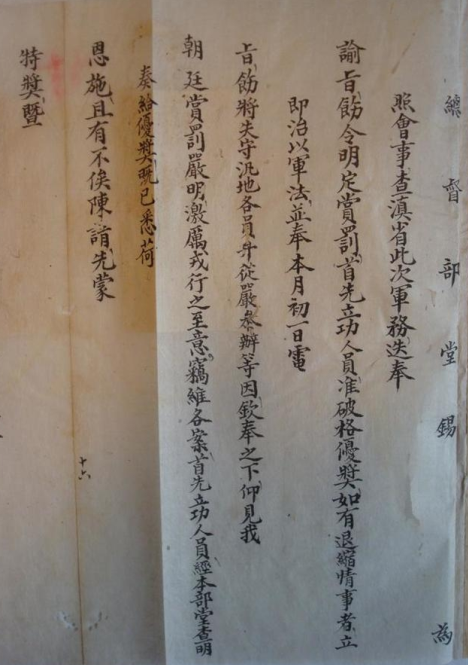 總督部堂錫 為
照會事查滇省此次軍務迭奉
諭旨飭令明定賞罰首先立功人員准破格優獎如有退縮情事者立
即治以軍法並奉本月初一日電
旨飭將失守汛地各員弁從嚴參辦等因欽奉之下仰見我
朝廷賞罰嚴明激厲戎行之至意竊維各案首先立功人員經本部堂查明
奏給優獎既已悉荷
恩施且有不俟陳請先蒙
特獎暨
十六